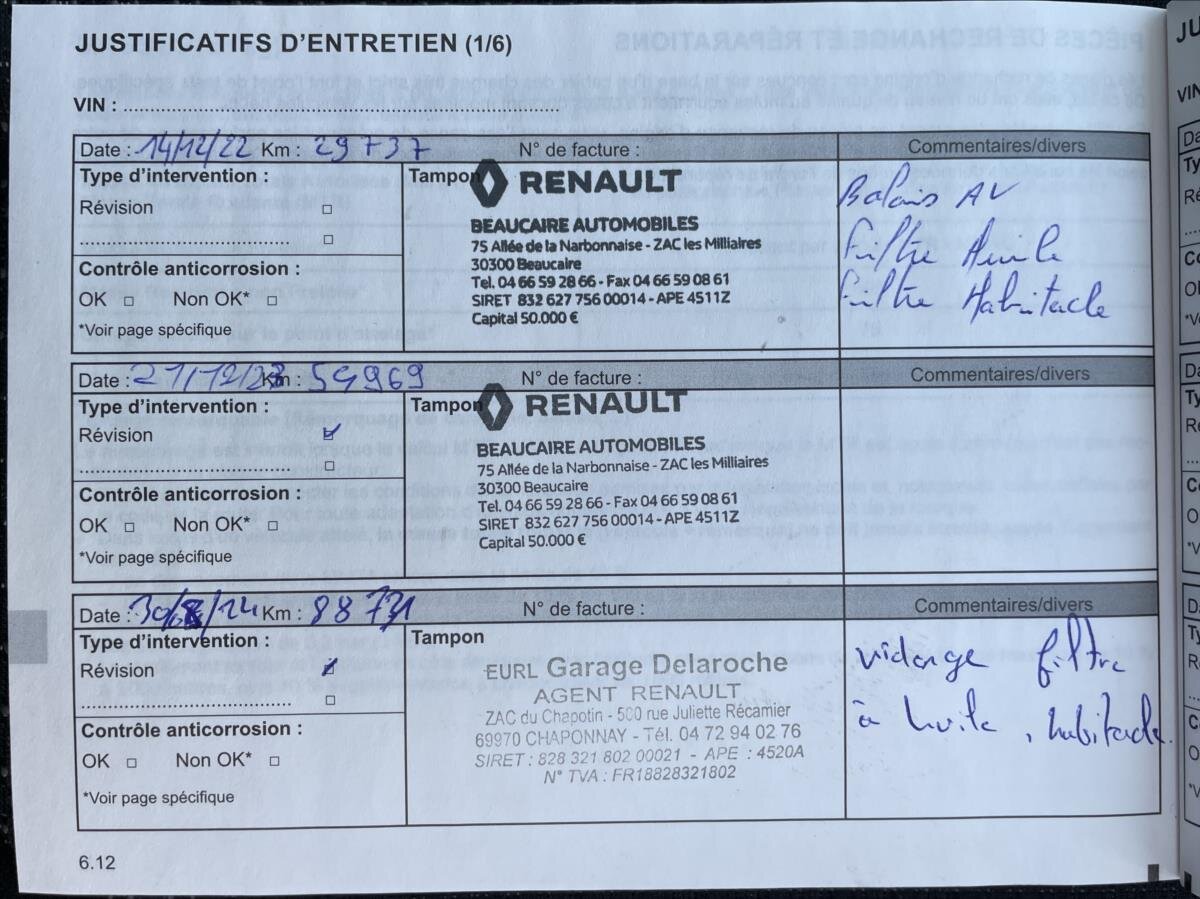 JUSTIFICATIFS D'ENTRETIEN (1/6)
VIN : ........................
Date : 14/12/22 Km : 29 737 N° de facture : Commentaires/divers
Type d'intervention :
Révision □
........................ □
Contrôle anticorrosion :
OK □ Non OK* □
*Voir page spécifique
Tampon
RENAULT
BEAUCAIRE AUTOMOBILES
75 Allée de la Narbonnaise - ZAC les Milliaires
30300 Beaucaire
Tel. 04 66 59 28 66 - Fax 04 66 59 08 61
SIRET 832 627 756 00014 - APE 4511Z
Capital 50.000 €
Balais AV
Filtre Huile
Filtre Habitacle
Date : 21/12/23 Km : 54969 N° de facture : Commentaires/divers
Type d'intervention :
Révision ☑
........................ □
Contrôle anticorrosion :
OK □ Non OK* □
*Voir page spécifique
Tampon
RENAULT
BEAUCAIRE AUTOMOBILES
75 Allée de la Narbonnaise - ZAC les Milliaires
30300 Beaucaire
Tel. 04 66 59 28 66 - Fax 04 66 59 08 61
SIRET 832 627 756 00014 - APE 4511Z
Capital 50.000 €
Date : 30/8/24 Km : N° de facture : Commentaires/divers
Type d'intervention :
Révision ☑
........................ □
Contrôle anticorrosion :
OK □ Non OK* □
*Voir page spécifique
Tampon
EURL Garage Delaroche
AGENT RENAULT
ZAC du Chapotin - 500 rue Juliette Récamier
69970 CHAPONNAY - Tél. 04 72 94 02 76
SIRET : 828 321 802 00021 - APE : 4520A
N° TVA : FR18828321802
vidange filtre
à huile, habitacle
6.12